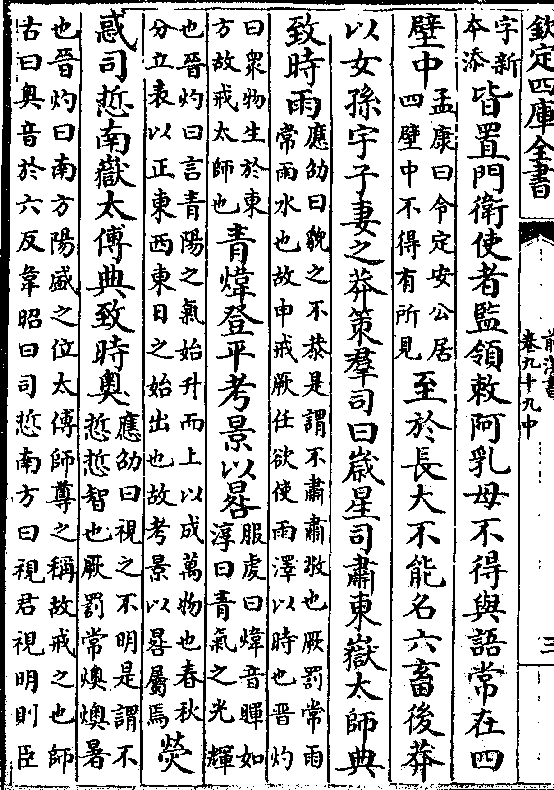 欽定四庫全書
前漢書
卷九十九中
三
字新
本添
皆置門衛使者監領敕阿乳母不得與語常在四
壁中
孟康曰令定安公居
四壁中不得有所見
至於長大不能名六畜後莽
以女孫宇子妻之莽策羣司曰歲星司肅東嶽太師典
致時雨
應劭曰貌之不恭是謂不肅肅敬也厥罰常雨
常雨水也故申戒厥任欲使雨澤以時也晉灼
曰眾物生於東
方故戒太師也
青煒登平考景以晷
服虔曰煒音暉如
淳曰青氣之光輝
也晉灼曰言青陽之氣始升而上以成萬物也春秋
分立表以正東西東日之始出也故考景以晷屬焉
熒
惑司悊南嶽太傅典致時奧
應劭曰視之不明是謂不
悊悊智也厥罰常燠燠暑
也晉灼曰南方陽盛之位太傅師尊之稱故戒之也師
古曰奧音於六反韋昭曰司悊南方曰視君視明則臣